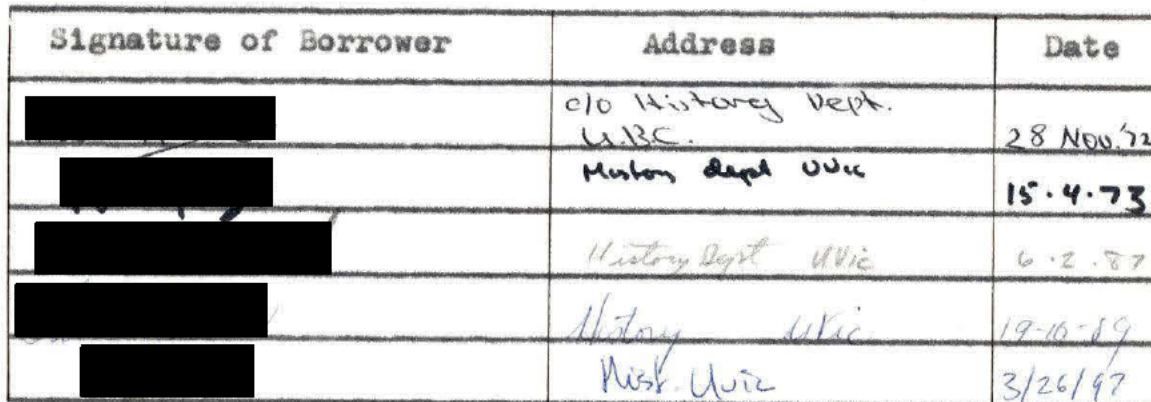 Signature of Borrower Address Date
c/o History Dept.
U.B.C. 28 Nov.'72
History dept UVic 15.4.73
History Dept UVic 6.2.87
History UVic 19-10-89
Hist. Uvic 3/26/97